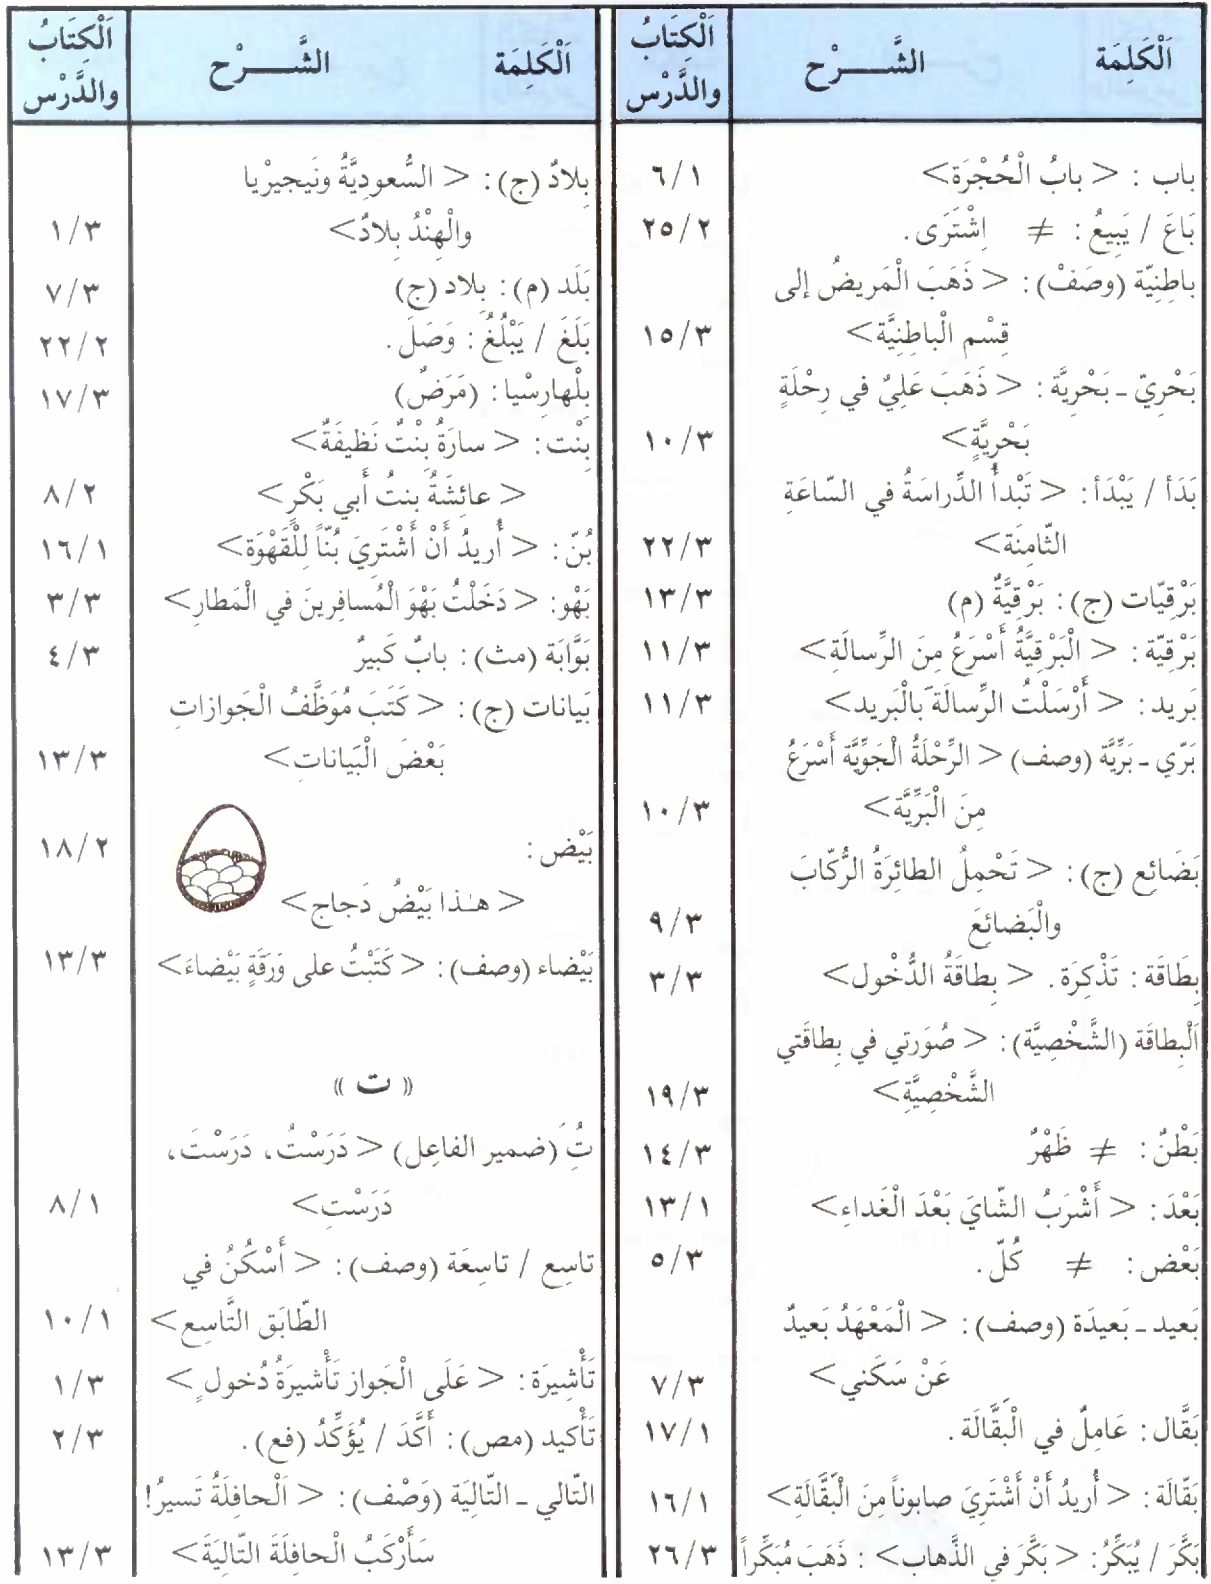 اَلْكَلِمَة الشَّـــرْح اَلْكِتَابُ والدَّرْس
باب : < بابُ الْحُجْرَة> ٦/١
بَاعَ / يَبِيعُ : ≠ اِشْتَرَى . ٢٥/٢
باطِنِيّة (وصَفْ) : < ذَهَبَ الْمَريضُ إلى
قِسْم الْباطِنِيَّة> ١٥/٣
بَحْرِيّ ـ بَحْرِيَّة : < ذَهَبَ عَلِيٌ في رِحْلَةٍ
بَحْرِيَّةٍ> ١٠/٣
بَدَأ / يَبْدَأ : < تَبْدأُ الدِّراسَةُ في السّاعَةِ
الثّامِنَة> ٢٢/٣
بَرْقِيّات (ج) : بَرْقِيَّةٌ (م) ١٣/٣
بَرْقِيّة : < الْبَرْقِيَّةُ أَسْرَعُ مِنَ الرِّسالَةِ> ١١/٣
بَريد : < أَرْسَلْتُ الرِّسالَةَ بالْبَريد> ١١/٣
بَرّي ـ بَرِّيَّة (وصف) < الرِّحْلَةُ الْجَوِّيَّة أَسْرَعُ
مِنَ الْبَرِّيَّة> ١٠/٣
بَضَائِع (ج) : < تَحْمِلُ الطائِرَةُ الرُّكّابَ
والْبَضائعَ ٩/٣
بِطَاقَة : تَذْكِرَة . < بِطاقَةُ الدُّخْول> ٣/٣
اَلْبِطاقَة (الشَّخْصِيَّة) : < صُوَرتي في بِطاقَتي
الشَّخْصِيَّةِ> ١٩/٣
بَطْنٌ : ≠ ظَهْرٌ ١٤/٣
بَعْدَ : < أَشْرَبُ الشّايَ بَعْدَ الْغَداءِ> ١٣/١
بَعْض : ≠ كُلّ . ٥/٣
بَعيد ـ بَعيدَة (وصف) : < الْمَعْهَدُ بَعيدٌ
عَنْ سَكَني> ٧/٣
بَقَّال : عَامِلٌ في الْبِقَّالَة . ١٧/١
بَقّالَة : < أُريدُ أَنْ أَشْتَرِيَ صابوناً مِنَ الْبَقَّالَةِ> ١٦/١
بَكَّرَ / يُبَكِّرُ: < بَكَّرَ في الذَّهاب> : ذَهَبَ مُبَكِّراً ٢٦/٣
اَلْكَلِمَة الشَّـــرْح اَلْكِتَابُ والدَّرْس
بِلادٌ (ج) : < السُّعودِيَّةُ ونَيجيرْيا
والْهِنْدُ بِلادٌ> ١/٣
بَلَد (م) : بِلاد (ج) ٧/٣
بَلَغَ / يَبْلُغُ : وَصَلَ . ٢٢/٢
بِلْهارِسْيا : (مَرَضٌ) ١٧/٣
بِنْت : < سارَةُ بِنْتٌ نَظيفَةٌ>
< عائِشَةُ بِنتُ أَبي بَكْرٍ> ٨/٢
بُنّ : < أُريدُ أَنْ أَشْتَرِيَ بُنّاً لِلْقَهْوَة> ١٦/١
بَهْو: < دَخَلْتُ بَهْوَ الْمُسافِرينَ في الْمَطارِ> ٣/٣
بَوَّابَة (مث) : بابٌ كَبيرٌ ٤/٣
بَيانات (ج) : < كَتَبَ مُوَظَّفُ الْجَوازاتِ
بَعْضَ الْبَيانات> ١٣/٣
بَيْض : ١٨/٢
< هـٰذا بَيْضُ دَجاج>
بَيْضاء (وصف) : < كَتَبْتُ على وَرَقَةٍ بَيْضاءَ> ١٣/٣
« ت »
تُِ (ضمير الفاعِل) < دَرَسْتُ، دَرَسْتَ،
دَرَسْتِ> ٨/١
تاسِع / تاسِعَة (وصف) : < أَسْكُنُ في
الطّابَق التَّاسِع> ١٠/١
تَأْشِيرَة : < عَلَى الْجَواز تَأْشيرَةُ دُخولٍ> ١/٣
تَأْكيد (مص) : أَكَّدَ / يُؤَكِّدُ (فع) . ٢/٣
التّالي ـ التّالِيَة (وَصْف) : < اَلْحافِلَةُ تَسيرُ!
سَأَرْكَبُ الْحافِلَةَ التّالِيَةَ> ١٣/٣